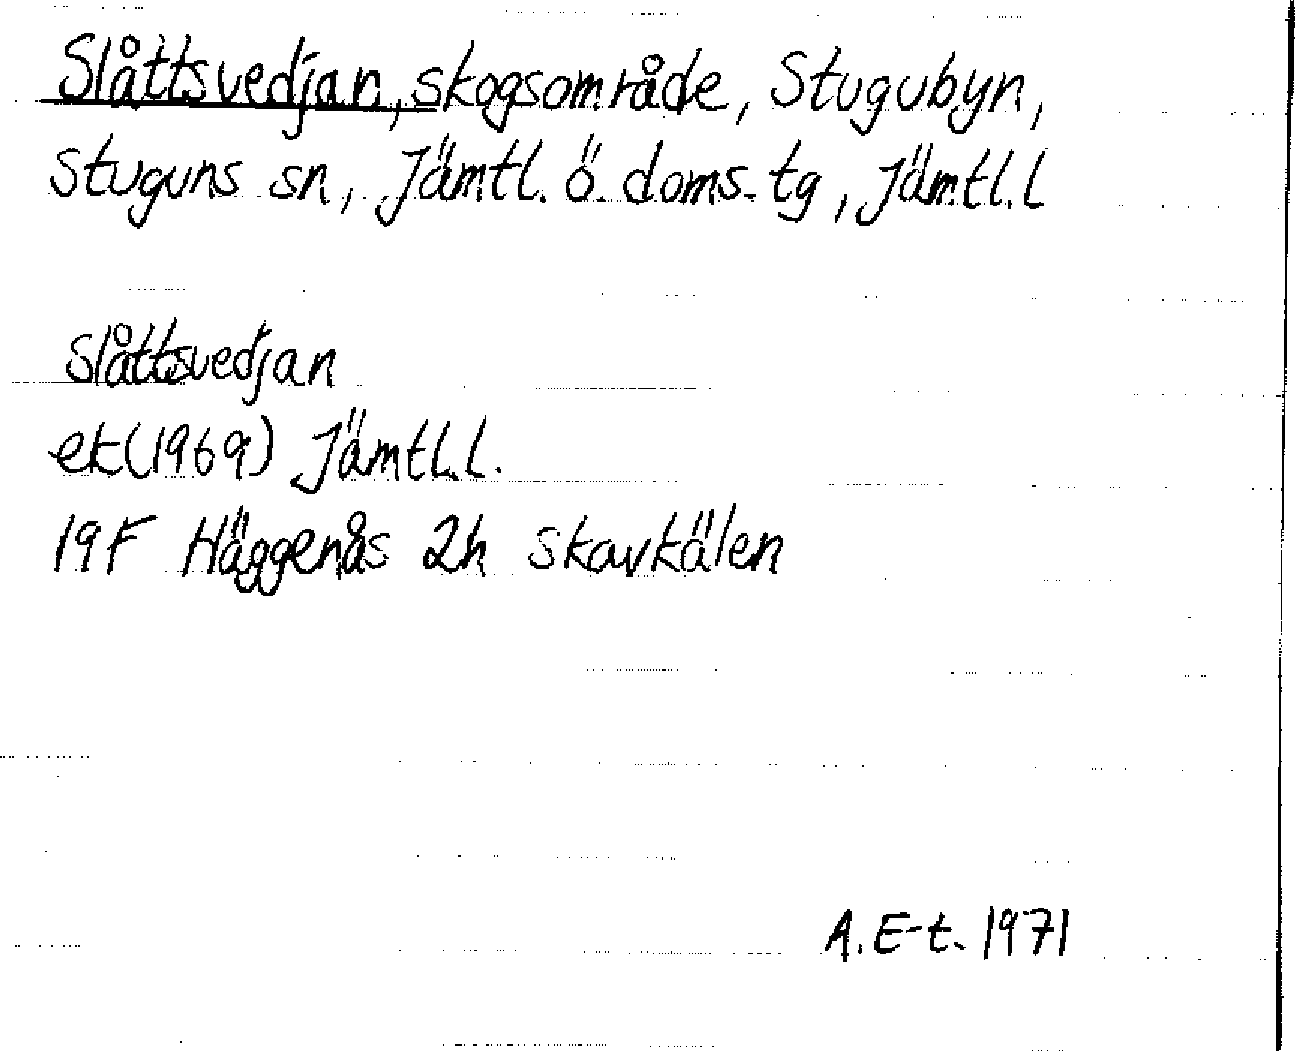 Slåttsvedjan, skogsområde, Stugubyn,
Stuguns sn, Jämtl. ö. doms. tg, Jämtl. l
Slåttsvedjan
ek (1969) Jämtl. l.
19F Häggenås 2h Skavkälen
A. E-t. 1971